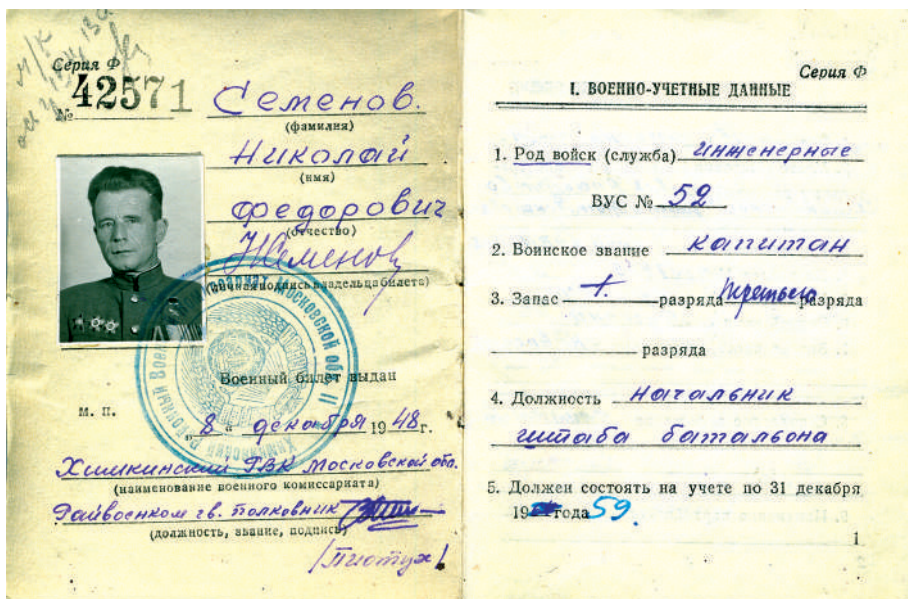 Серия Ф
№ 42571
Семенов.
(фамилия)
Николай
(имя)
Федорович
(отчество)
НСеменов
(личная подпись владельца билета)
Военный билет выдан
М. П.
„8" декабря 1948г.
Химкинский РВК Московской обл.
(наименование военного комиссариата)
Райвоенком гв. полковник
(должность, звание, подпись)
/Пиотух/
Серия Ф
I. ВОЕННО-УЧЕТНЫЕ ДАННЫЕ
1. Род войск (служба) инженерные
ВУС № 52
2. Воинское звание капитан
3. Запас 1. разряда третьего разряда
разряда
4. Должность Начальник
штаба батальона
5. Должен состоять на учете по 31 декабря
19 года 59.
1